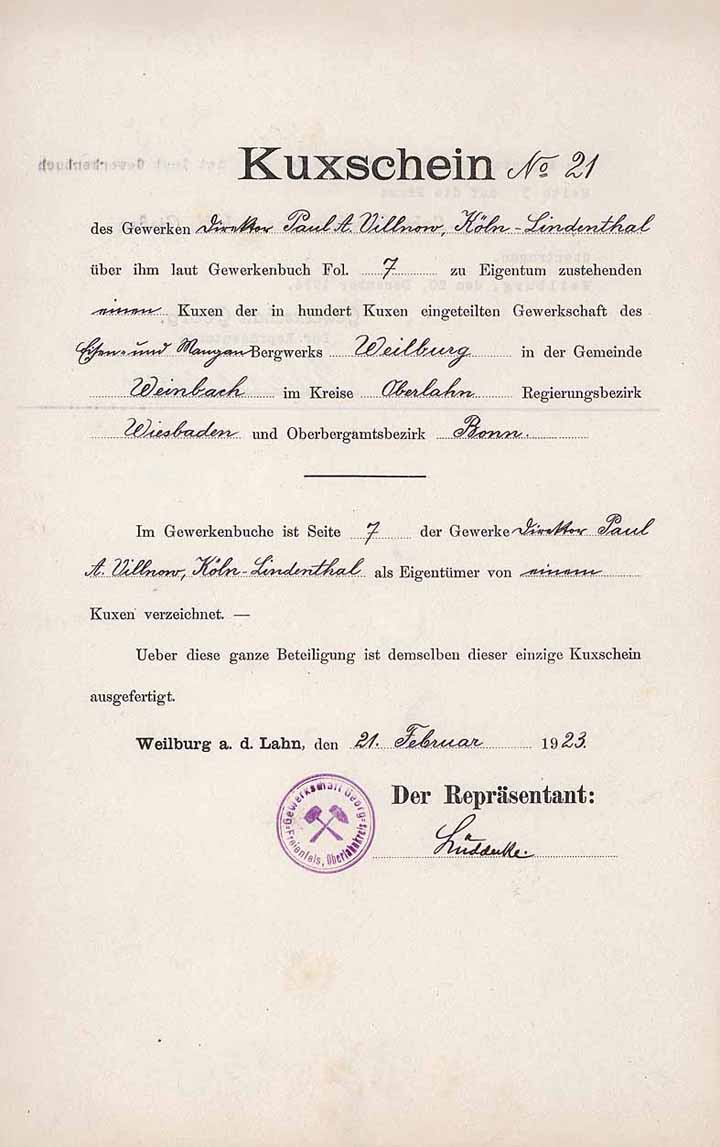 Kuxschein No 21
des Gewerken Direktor Paul A. Villnow, Köln-Lindenthal
über ihm laut Gewerkenbuch Fol. 7 zu Eigentum zustehenden
einen Kuxen der in hundert Kuxen eingeteilten Gewerkschaft des
Eisen- und Mangan Bergwerks Weilburg in der Gemeinde
Weinbach im Kreise Oberlahn Regierungsbezirk
Wiesbaden und Oberbergamtsbezirk Bonn.
Im Gewerkenbuche ist Seite 7 der Gewerke Direktor Paul
A. Villnow, Köln-Lindenthal als Eigentümer von einem
Kuxen verzeichnet. —
Ueber diese ganze Beteiligung ist demselben dieser einzige Kuxschein
ausgefertigt.
Weilburg a. d. Lahn, den 21. Februar 1923.
Gewerkschaft Georg
Freienfels, Oberlahnkreis
Der Repräsentant: